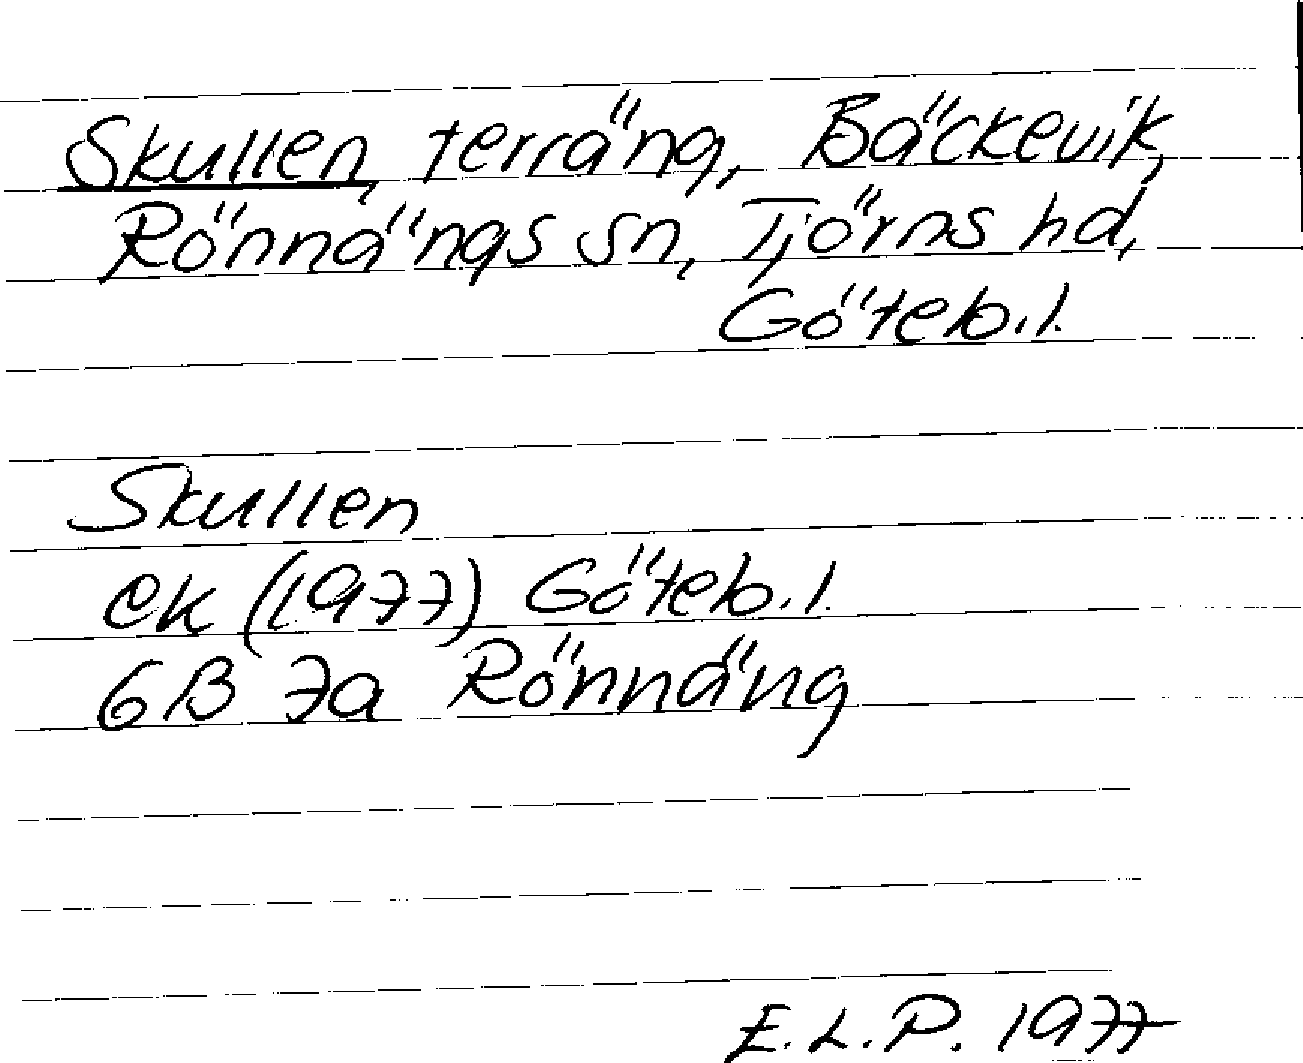 Skullen, terräng, Bäckevik,
Rönnängs sn, Tjörns hd,
Göteb.l.
Skullen
ek (1977) Göteb.l.
6B 7a Rönnäng
E.L.P. 1977